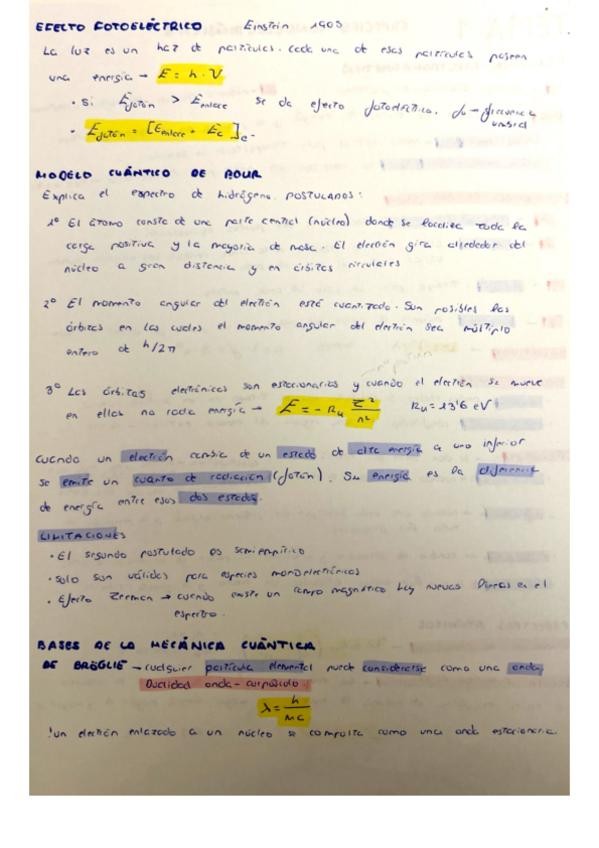 EFECTO FOTOELÉCTRICO Einstein 1905
La luz es un haz de partículas. Cada una de esas partículas poseen
una energía → E = h · ν
· Si Efotón > Eenlace se da efecto fotoeléctrico. fo → frecuencia umbral
· Efotón = [Eenlace + Ec]e-
MODELO CUÁNTICO DE BOHR
Explica el espectro de hidrógeno. POSTULADOS:
1º El átomo consta de una parte central (núcleo) donde se localiza toda la
carga positiva y la mayoría de masa. El electrón gira alrededor del
núcleo a gran distancia y en órbitas circulares
2º El momento angular del electrón está cuantizado. Son posibles las
órbitas en las cuales el momento angular del electrón sea múltiplo
entero de h/2π
3º Las órbitas electrónicas son estacionarias y cuando el electrón se mueve
en ellas no radia energía → E = - RH Z²/n² RH = 13'6 eV
Cuando un electrón cambia de un estado de alta energía a uno inferior
se emite un cuanto de radiación (fotón). Su energía es la diferencia
de energía entre esos dos estados.
LIMITACIONES
· El segundo postulado es semiempírico
· Solo son válidos para especies monoelectrónicas
· Efecto Zeeman → cuando existe un campo magnético hay nuevas líneas en el
espectro.
BASES DE LA MECÁNICA CUÁNTICA
DE BROGLIE → cualquier partícula elemental puede considerarse como una onda,
Dualidad onda-corpúsculo.
λ = h/mc
!un electrón enlazado a un núcleo se comporta como una onda estacionaria.